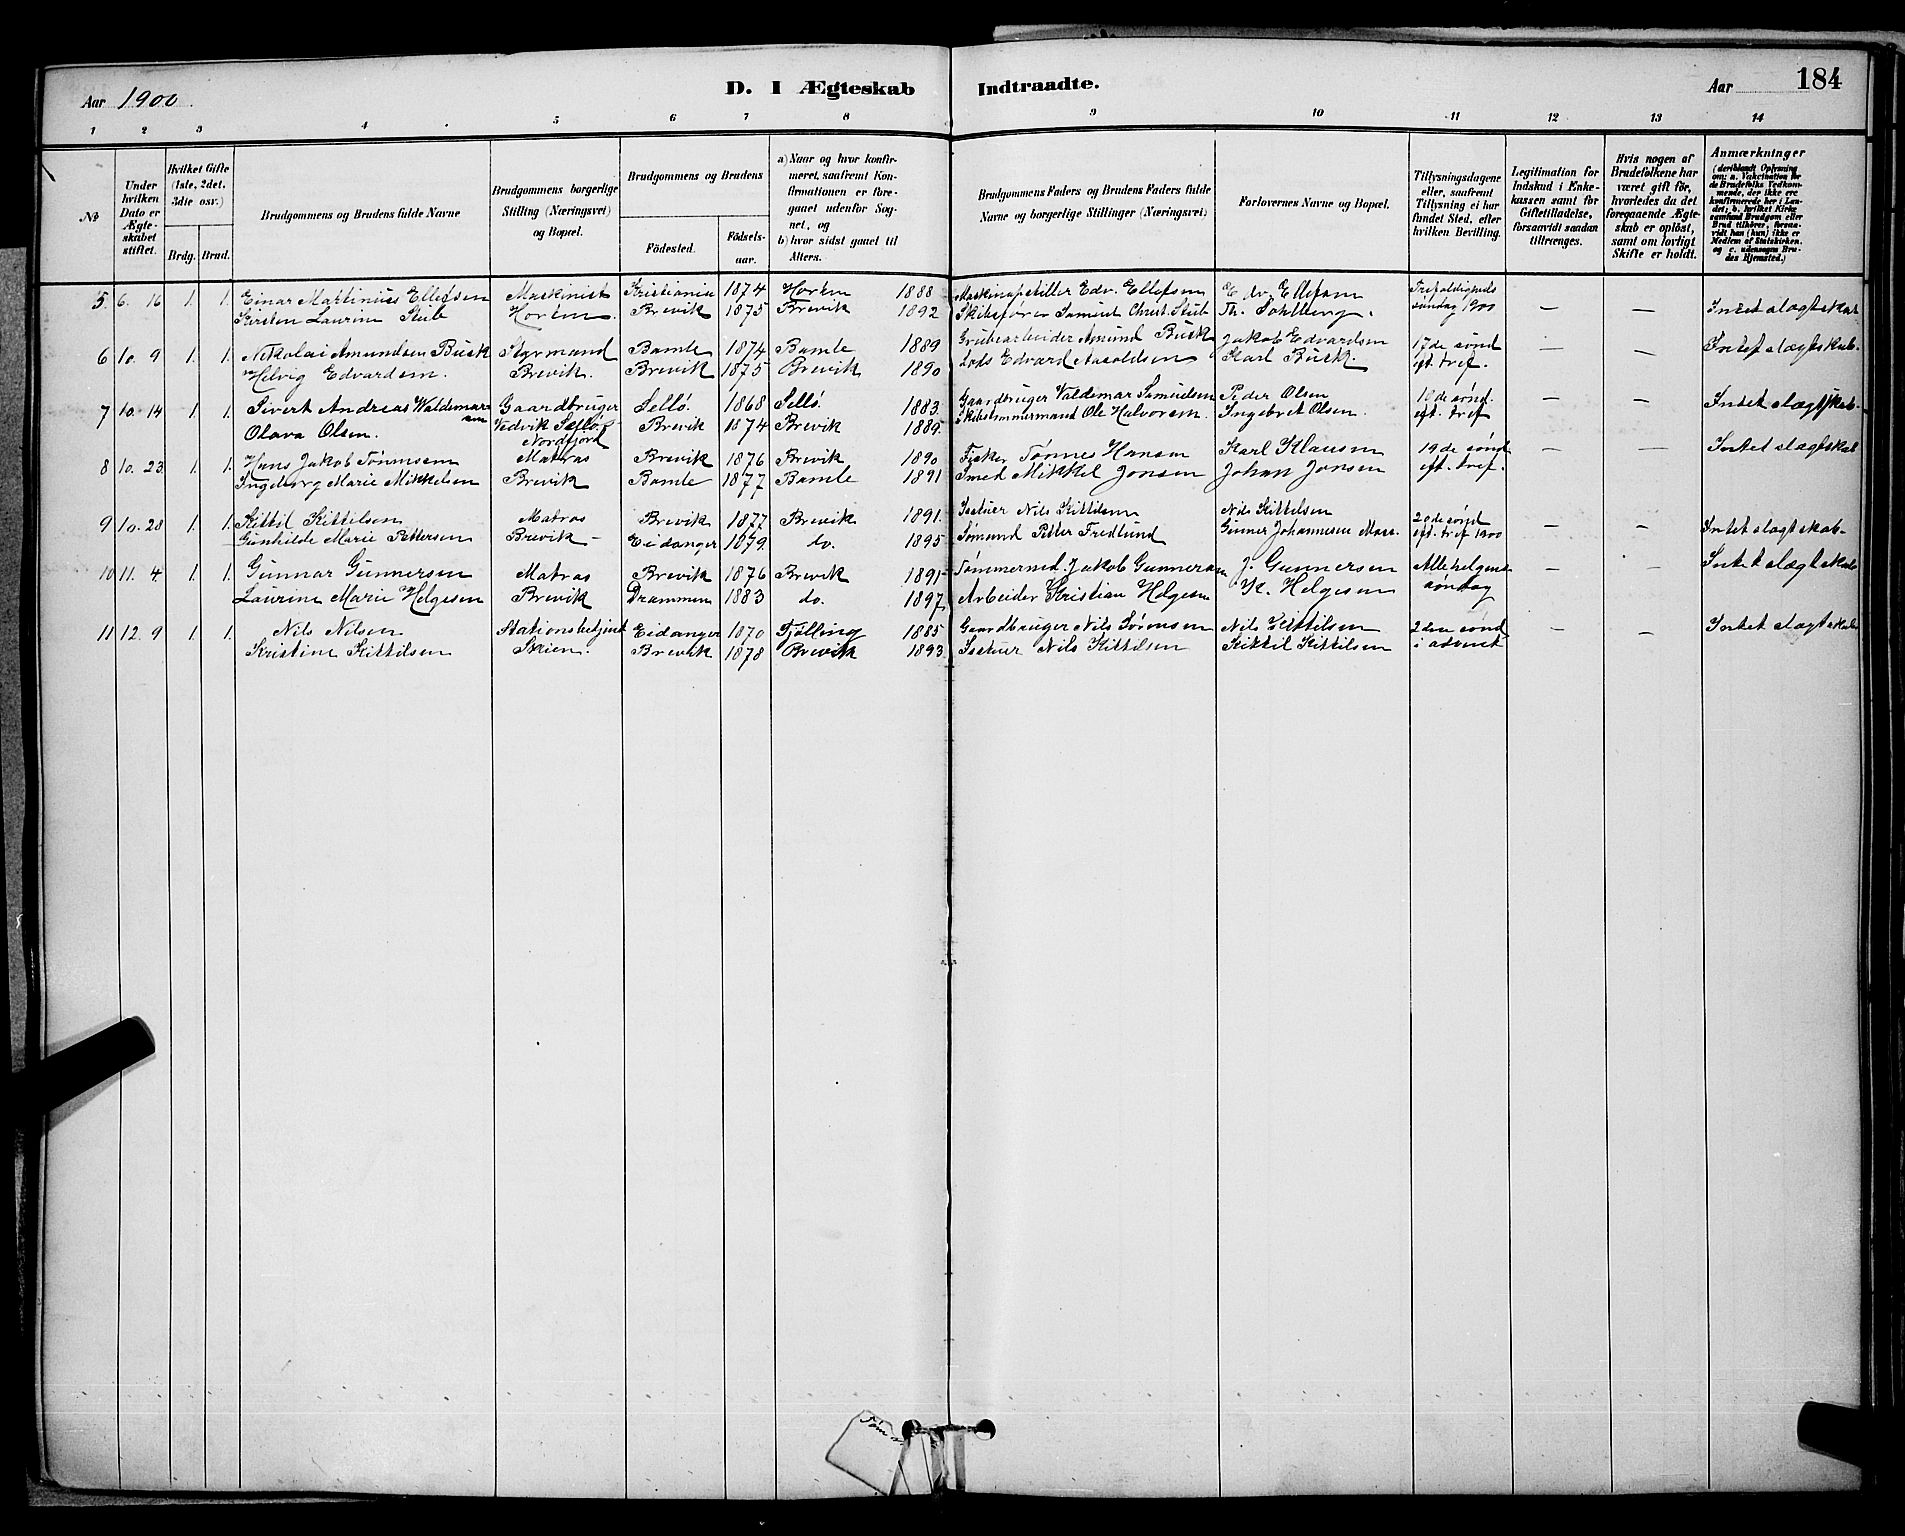 Aar 1900.
D. I Ægteskab
Indtraadte.
Aar
184
1 2 3 4 5 6 7 8 9 10 11 12 13 14
№
Under hvilken Dato er Ægteskabet stiftet.
Hvilket Gifte (1ste, 2det, 3die osv.)
Brdg. Brud.
Brudgommens og Brudens fulde Navne
Brudgommens borgerlige Stilling (Næringsvei) og Bopæl.
Brudgommens og Brudens
Födested.
Födselsaar.
a) Naar og hvor konfirmeret, saafremt Konfirmationen er foregaaet udenfor Sognet, og
b) hvor sidst gaaet til Alters.
Brudgommens Faders og Brudens Faders fulde Navne og borgerlige Stillinger (Næringsvei)
Forlovernes Navne og Bopæl.
Tillysningsdagene eller, saafremt Tillysning ei har fundet Sted, efter hvilken Bevilling.
Legitimation for Indskud i Enkekassen samt for Giftetilladelse, forsaavidt saadan tiltrænges.
Hvis nogen af Brudefolkene har været gift för, hvorledes da det foregaaende Ægteskab er oplöst, samt om lovligt Skifte er holdt.
Anmærkninger
(deriblandt Oplysning om: a. Vaksination for de Brudefolks Vedkommende, der ikke ere konfirmerede her i Landet; b. hvilket Kirkesamfund Brudgom eller Brud tilhörer, forsaavidt han (hun) ikke er Medlem af Statskirken, og c. udensogns Brudes Hjemsted.)
5. 6. 16 1. 1. Einar Martinius Ellefsen Maskinist Kristiania 1874 Horten 1888 Maskinopstiller Edv. Ellefsen Edv. Ellefsen Trefoldigheds — — Intet slagtskab
Kirsten Laurine Stub Horten Brevik 1875 Brevik 1892 Skibsfører Samuel Christ. Stub Th. Sahlberg. søndag 1900
6 10. 9 1. 1. Nikolai Amundsen Busk Styrmand Bamle 1874 Bamle 1889 Grubearbeider Amund Busk Jakob Edvardsen 17de sønd — — Intet slagtskab.
Helvig Edvardsen. Brevik. Brevik 1875 Brevik 1890 Lods Edvard Aasoldsen Karl Busk. eft. tref.
7 10. 14 1. 1. Sivert Andreas Waldemarsen Gaardbruger Sellö 1868 Sellö. 1883. Gaardbruger Valdemar Samuelsen Peder Olsen 18de sønd. — — Intet slægtskab.
Olava Olsen. Vedvik Sellö Nordfjord Brevik 1874 Brevik 1889. Skibstømmermand Ole Halvorsen. Ingebret Olsen. eft. tref
8 10. 23 1. 1. Hans Jakob Tønnesen Matros Brevik 1876 Brevik 1890 Fisker Tønnes Hansen Karl Klausen 19de sønd — — Intet slægtskab
Ingeborg Marie Mikkelsen Brevik Bamle 1877 Bamle 1891 Smed Mikkel Jonsen Johan Jonsen eft. tref.
9 10. 28 1. 1. Kittil Kittilsen Matros Brevik 1877 Brevik 1891. Nils Kittilsen Nils Kittelsen 20de sønd — — Intet slagtskab.
Gunhilde Marie Pettersen Brevik Eidanger 1879. do. 1895 Sømand Petter Fredlund Gunner Johannesen eft. tref 1900
10 11. 4 1. 1. Gunnar Gunnersen Matros Brevik 1876 Brevik 1891 Tømmermd. Jakob Gunnersen J. Gunnersen Allehelgens — — Intet slægtskab
Laurine Marie Helgesen Brevik Drammen 1883 do. 1897. Arbeider Kristian Helgesen K. Helgesen søndag
11 12. 9 1. 1. Nils Nilsen Stationsbetjent Eidanger 1870 Tjølling 1885 Gaardbruger Nils Sørensen Nils Kittelsen 2den sønd — — Intet slægtskab
Kristine Kittilsen Skien. Brevik 1878 Brevik 1893. Nils Kittilsen Kittil Kittelsen i advent